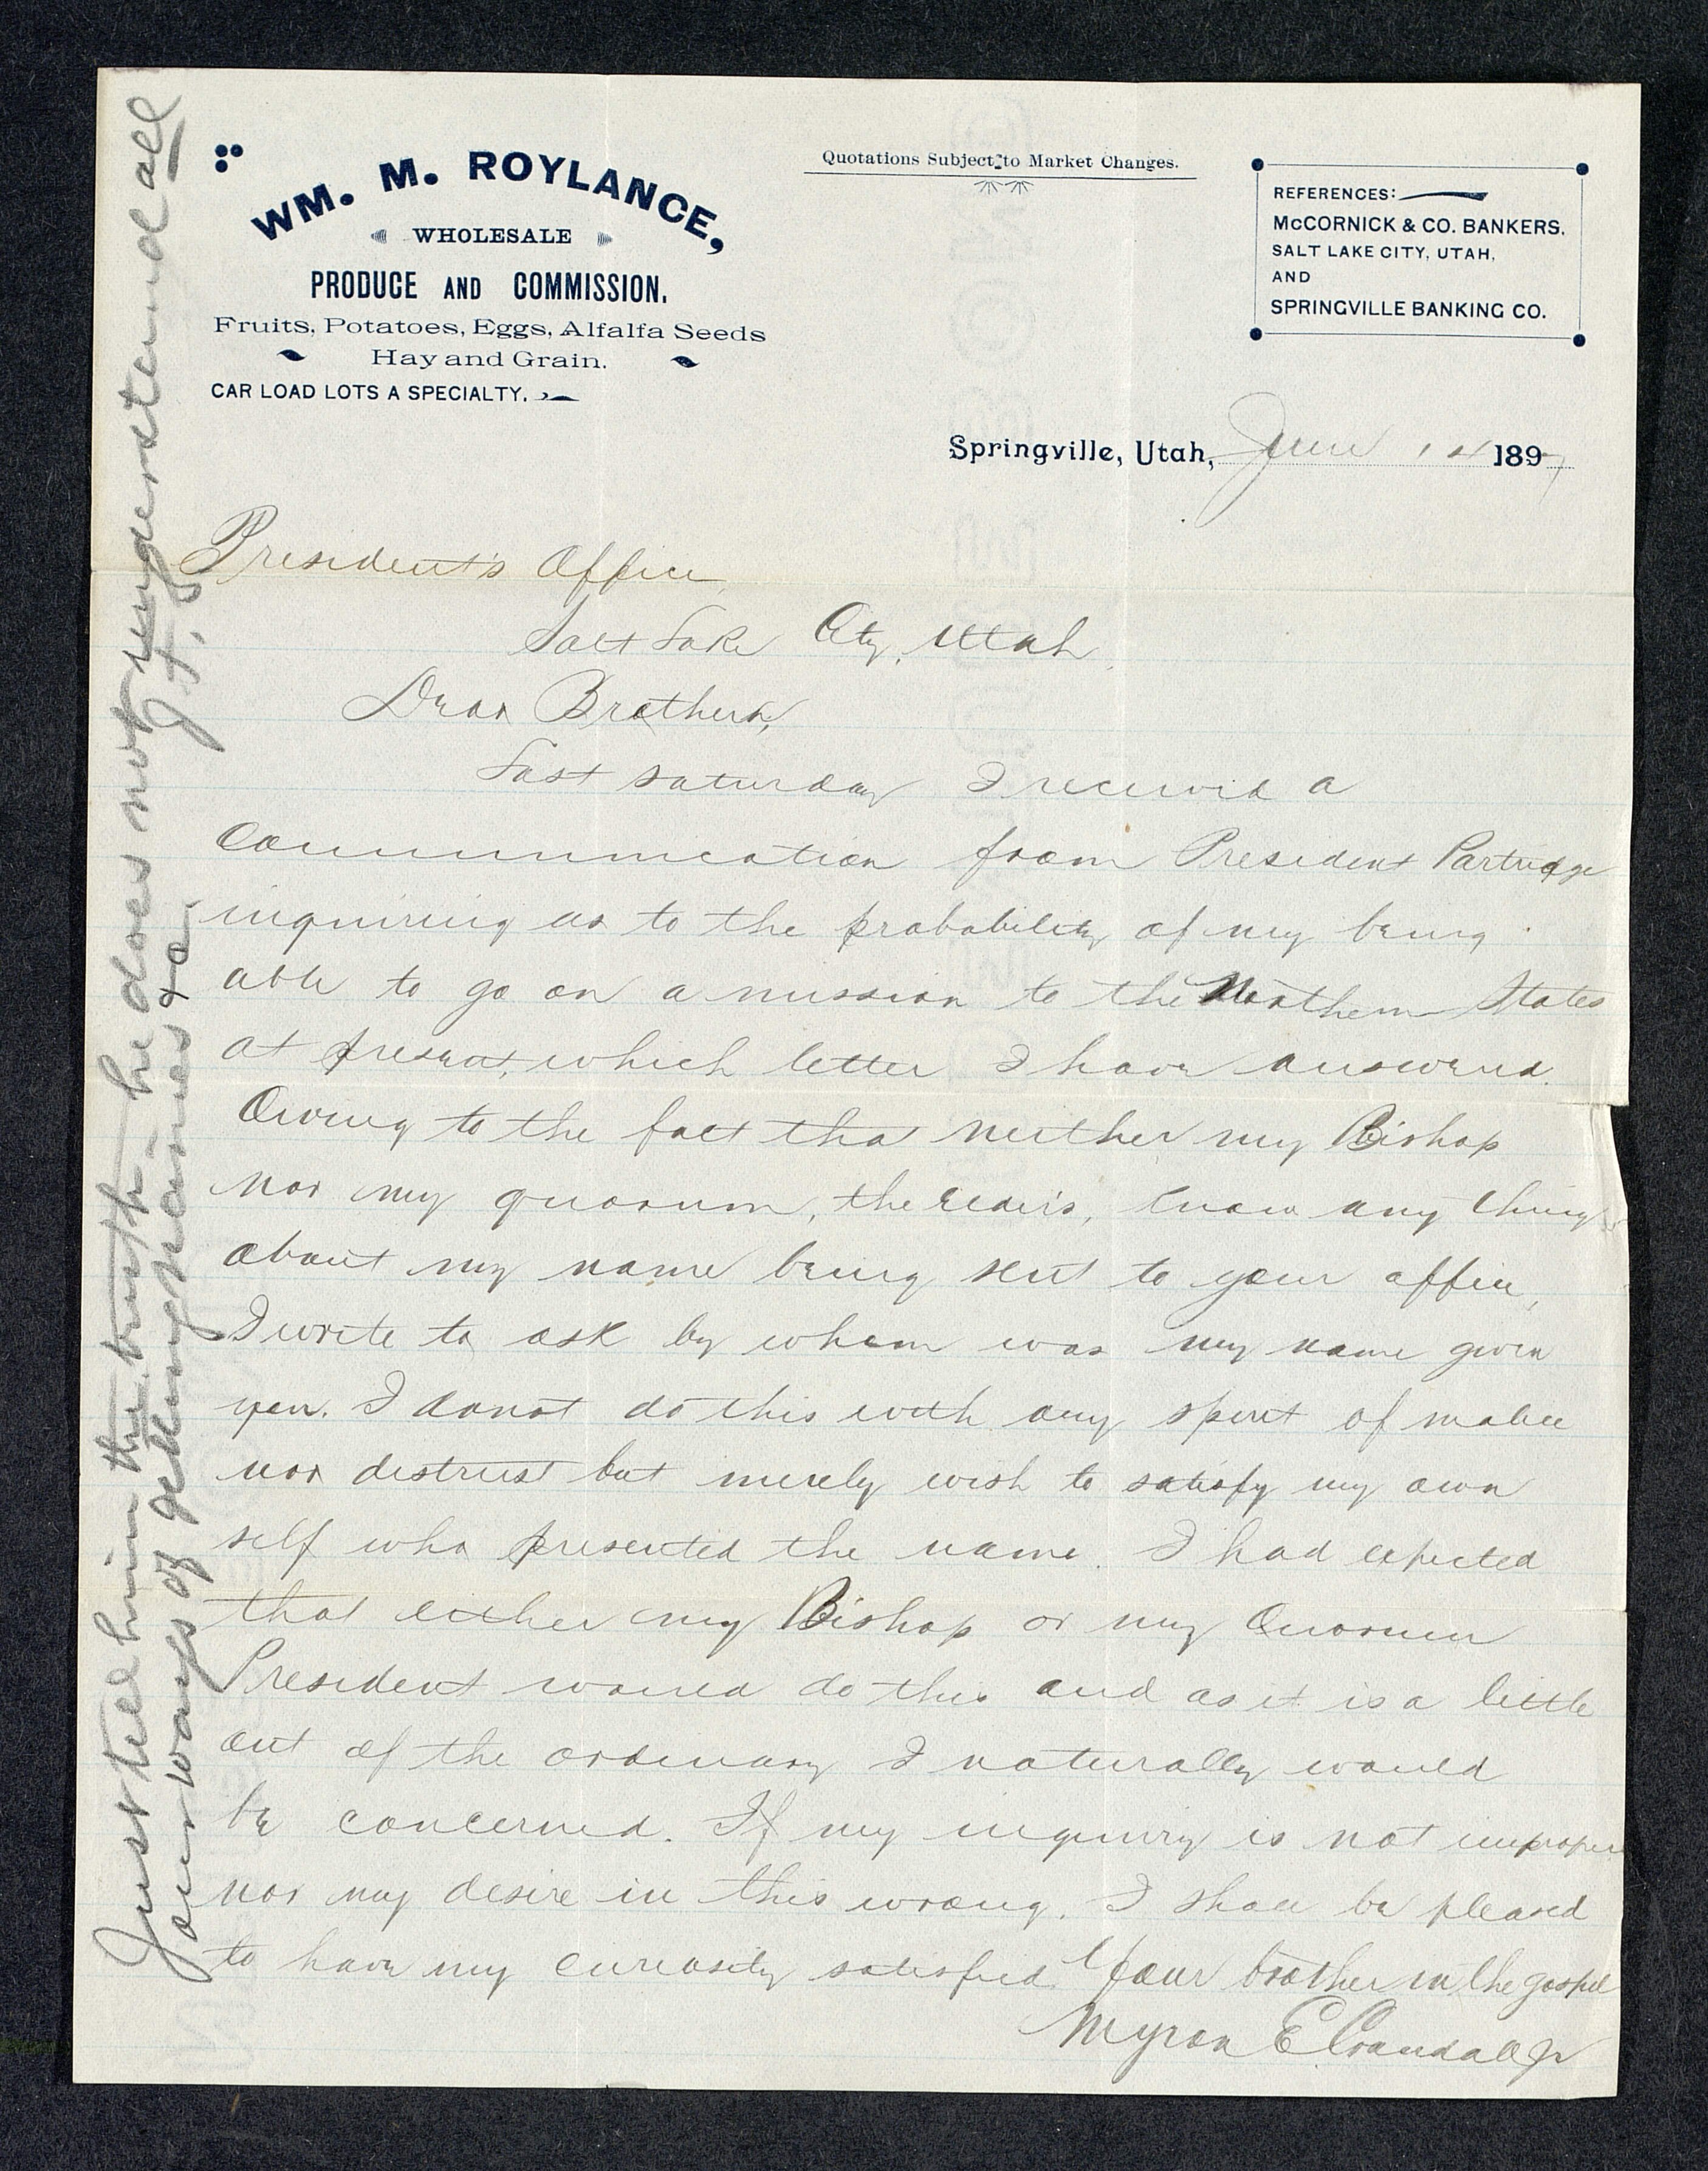 WM. M. ROYLANCE,
WHOLESALE
PRODUCE AND COMMISSION.
Fruits, Potatoes, Eggs, Alfalfa Seeds
Hay and Grain.
CAR LOAD LOTS A SPECIALTY.
Quotations Subject to Market Changes.
REFERENCES:
McCORNICK & CO. BANKERS.
SALT LAKE CITY, UTAH,
AND
SPRINGVILLE BANKING CO.
Springville, Utah, June 14 1897
President's Office,
Salt Lake City, Utah.
Dear Brothers,
Last saturday I received a
communication from President Partridge
inquiring as to the probability of my being
able to go on a mission to the Northern States
at present, which letter I have answered.
Owing to the fact tha neither my Bishop
nor my quorum, the Elders, know any thing
about my name being sent to your office,
I write to ask by whom was my name given
you. I donot do this with any spirit of malice
nor distrust but merely wish to satisfy my own
self who presented the name. I had expected
that either my Bishop or my Quorum
President would do this and as it is a little
out of the ordinary I naturally would
be concerned. If my inquiry is not improper
nor my desire in this wrong, I shall be pleased
to have my curiosity satisfied. Your brother in the gospel
Myron E Crandall Jr
Just tell him the truth- he does not understand all
our ways of getting names &c
J. F. S.